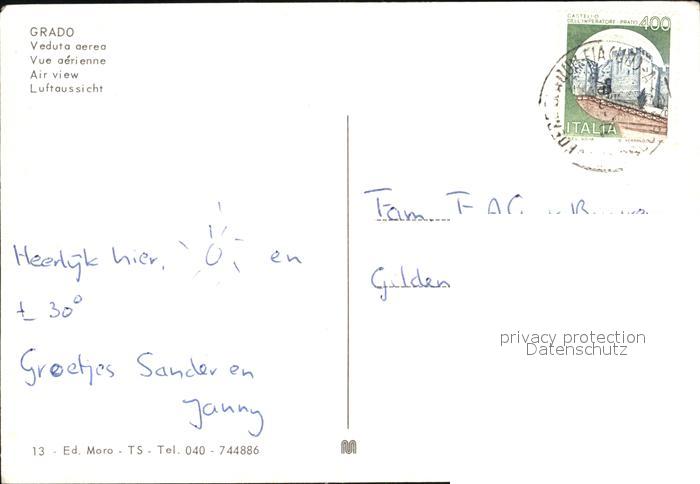 GRADO
Veduta aerea
Vue aérienne
Air view
Luftaussicht
CASTELLO
DELL'IMPERATORE · PRATO 400
ITALIA
Fam.
Heerlijk hier, en
± 30°
Gilden
privacy protection
Datenschutz
Groetjes Sander en
Janny
13 - Ed. Moro - TS - Tel. 040 - 744886